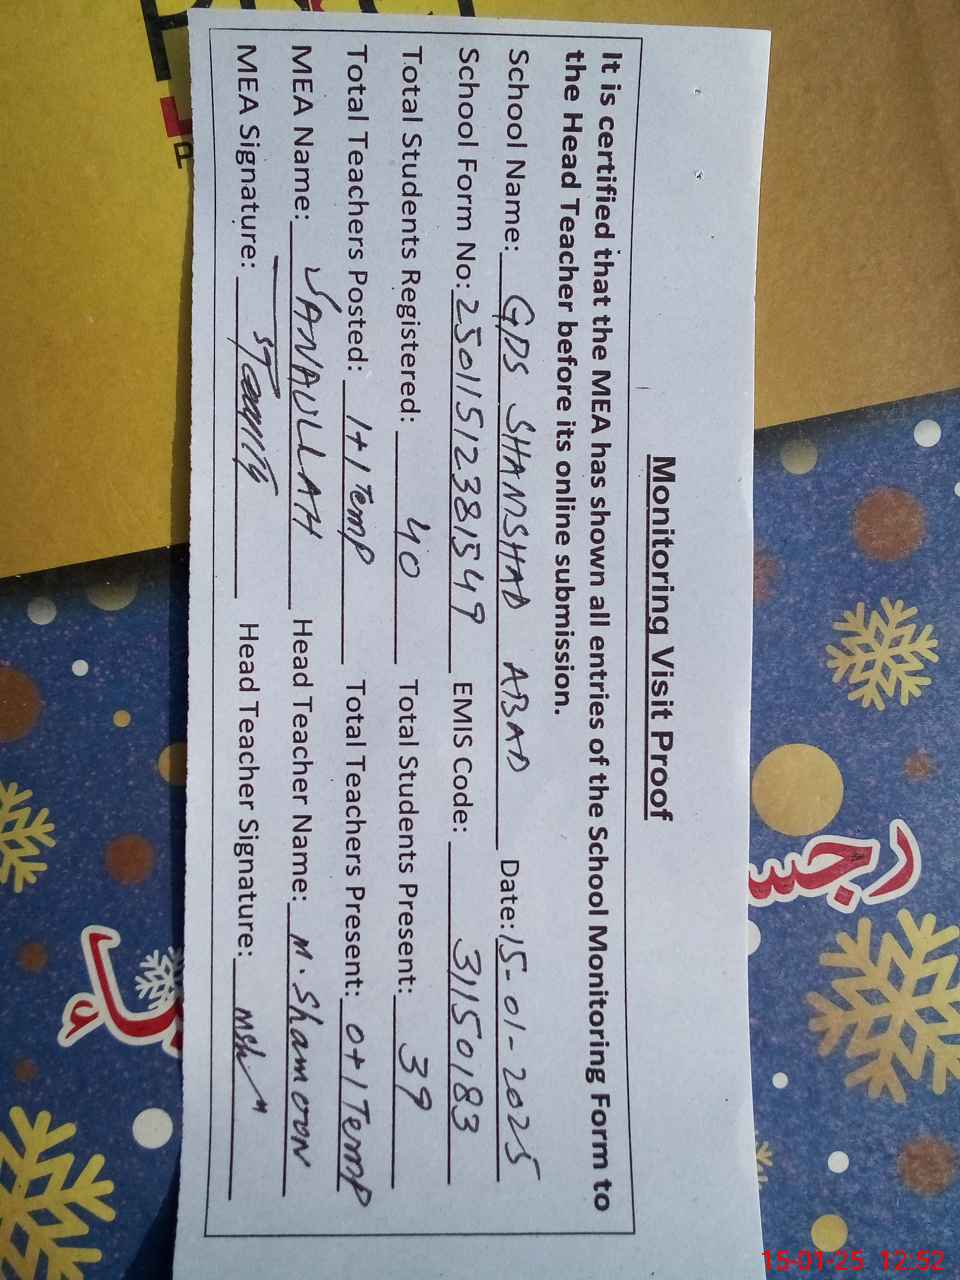 Monitoring Visit Proof
It is certified that the MEA has shown all entries of the School Monitoring Form to
the Head Teacher before its online submission.
School Name: GPS SHAMSHAD ABAD Date: 15-01-2025
School Form No: 25011512381549 EMIS Code: 31150183
Total Students Registered: 40 Total Students Present: 39
Total Teachers Posted: 1+1 Temp Total Teachers Present: 0+1 Temp
MEA Name: SANAULLAH Head Teacher Name: M. Shamoon
MEA Signature: Head Teacher Signature: msh
رجس
15-01-25 12:52